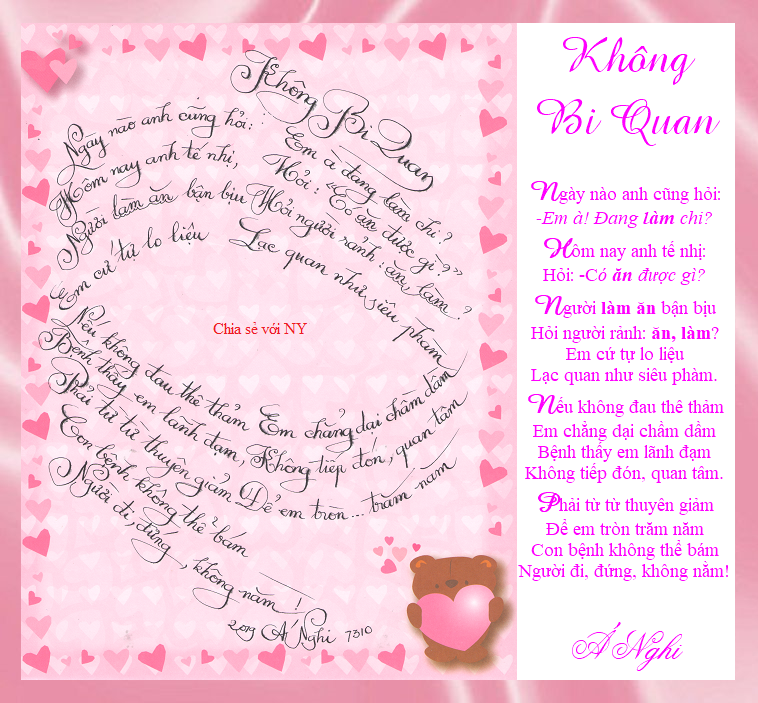 Không Bi Quan
Ngày nào anh cũng hỏi:
Em à đang làm chi?
Hôm nay anh tế nhị,
Hỏi: “Có ăn được gì?”
Người làm ăn bận bịu
Hỏi người rảnh: ăn, làm?
Em cứ tự lo liệu
Lạc quan như siêu phàm
Nếu không đau thê thảm
Em chẳng dại chầm dầm
Bệnh thấy em lãnh đạm,
Không tiếp đón, quan tâm
Phải từ từ thuyên giảm
Để em tròn... trăm năm
Con bệnh không thể bám
Người đi, đứng, không nằm!
2019 Á Nghi 7310
Chia sẻ với NY
Không
Bi Quan
Ngày nào anh cũng hỏi:
-Em à! Đang làm chi?
Hôm nay anh tế nhị:
Hỏi: -Có ăn được gì?
Người làm ăn bận bịu
Hỏi người rảnh: ăn, làm?
Em cứ tự lo liệu
Lạc quan như siêu phàm.
Nếu không đau thê thảm
Em chẳng dại chầm dầm
Bệnh thấy em lãnh đạm
Không tiếp đón, quan tâm.
Phải từ từ thuyên giảm
Để em tròn trăm năm
Con bệnh không thể bám
Người đi, đứng, không nằm!
Á Nghi